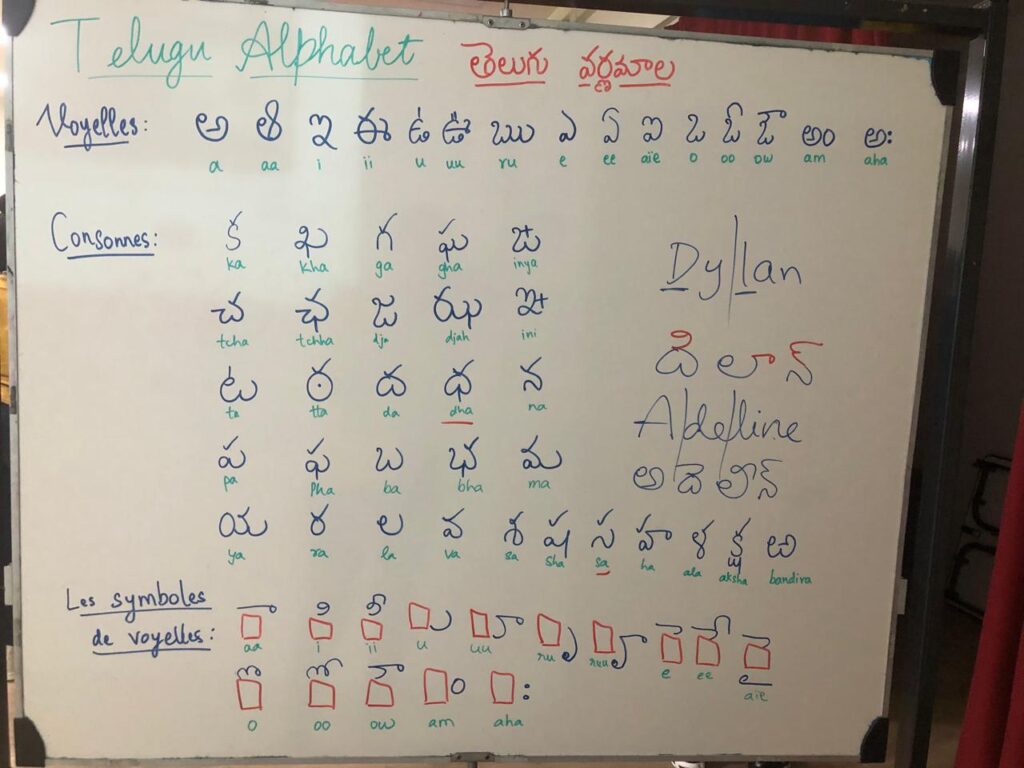 Telugu Alphabet తెలుగు వర్ణమాల
Voyelles: అ ఆ ఇ ఈ ఉ ఊ ఋ ఎ ఏ ఐ ఒ ఓ ఔ అం అః
a aa i ii u uu ru e ee aïe o oo ow am aha
Consonnes: క ఖ గ ఘ ఙ
ka kha ga gha inya
చ ఛ జ ఝ ఞ
tcha tchha dja djah ini
ట ఠ ద ధ న
ta tta da dha na
ప ఫ బ భ మ
pa pha ba bha ma
య ర ల వ శ ష స హ ళ క్ష ఱ
ya ra la va sa sha sa ha ala aksha bandira
Dyllan
దిలాన్
Adeline
అదెలిన్
Les symboles de voyelles:
aa i ii u uu ru ruu e ee aïe
o oo ow am aha